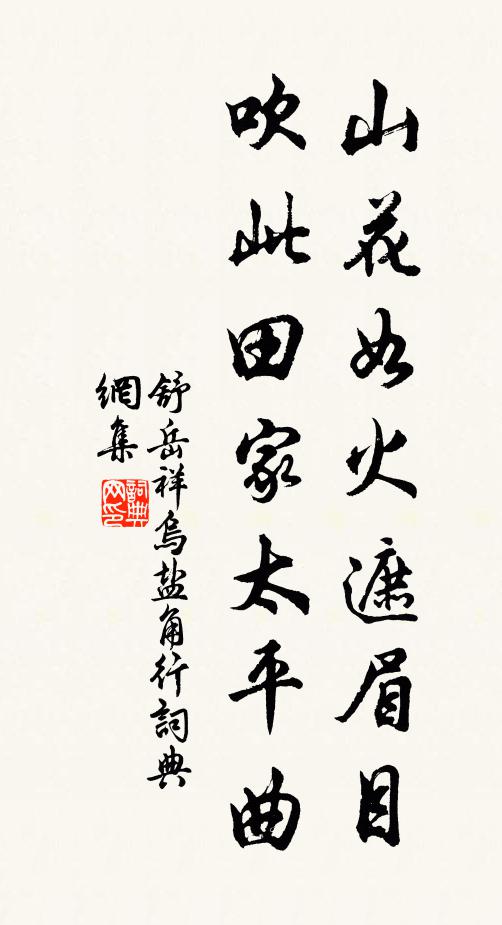 山花如火遮眉目
吹此田家太平曲
舒岳祥烏盐角行詞典
網集
詞典网印